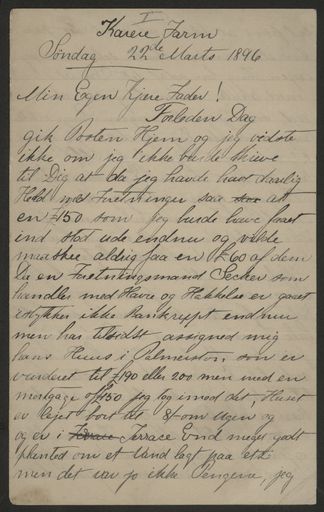 I
Karere Farm
Søndag 22de Marts 1896
Min Egen Kjere Fader!
Forleden Dag
gik Posten Hjem og jeg vidste
ikke om jeg ikke burde skrive
til Dig at da jeg havde havt daarlig
Held med Forretninger saa at
en £150 som jeg burde have faaet
ind stod ude endnu og vilde
maaskee aldrig faa en £60 af dem
la en Forretningsmand Secker som
handler med Havre og Hakkelse er gaaet
istykker ikke Bankrupt endnu
men har tilsidst assigned mig
hans Huus i Palmerston som er
vurderet til £190 eller 200 men med en
mortgage of £150 jeg tog imod det, Huset
er lejet bort til om Ugen og
og er i Terrace End meget godt
men det var jo ikke Pengene, jeg